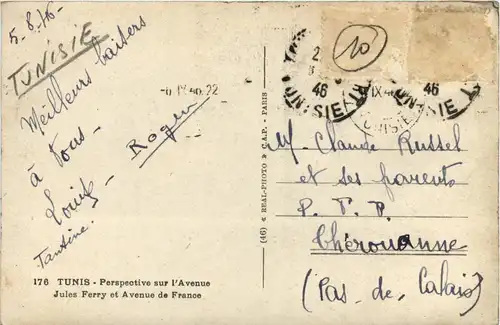 5.8.46-
TUNISIE
Meilleurs baisers
à Tous-
Roger
Tantine.
176 TUNIS - Perspective sur l'Avenue
Jules Ferry et Avenue de France
(46) « REAL-PHOTO » C.A.P. - PARIS
IX 46 22
10
46
46
M. Claude Russel
et ses parents
P. T. T.
Thérouanne
(Pas-de-Calais)